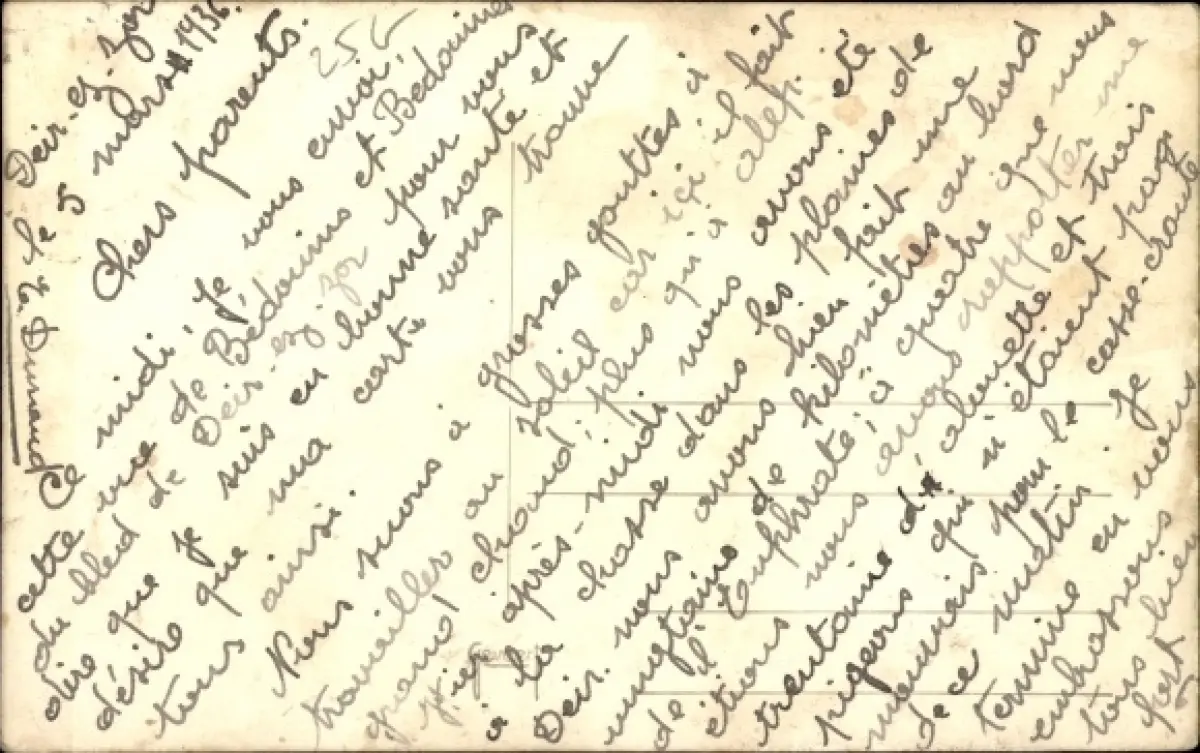 Deir-ez-zor
le 5 mars 1936.
25 L
Chers parents.
Ce midi, je vous envoi,
cette vue de Bédouins et Bédouines
du bled de Deir-ez-zor pour vous
dire que je suis en bonne santé et
désire que ma carte vous trouve
tous ainsi.
Nous suons à grosses gouttes à
travailler au soleil car içi il fait
grand chaud, plus qu'à alep.
hier après-midi nous avons été
à la chasse dans les plaines de
Deir. nous avons bien fait une
vingtaine de kilomètres au bord
de l'Euphrate, à quatre que nous
étions nous avons rapporter une
trentaine d'alouette et trois
pigeons qui n'étaient pas
mauvais pour le casse-croute
de ce matin. Je
termine en vous
embrassons
tous bien
fort